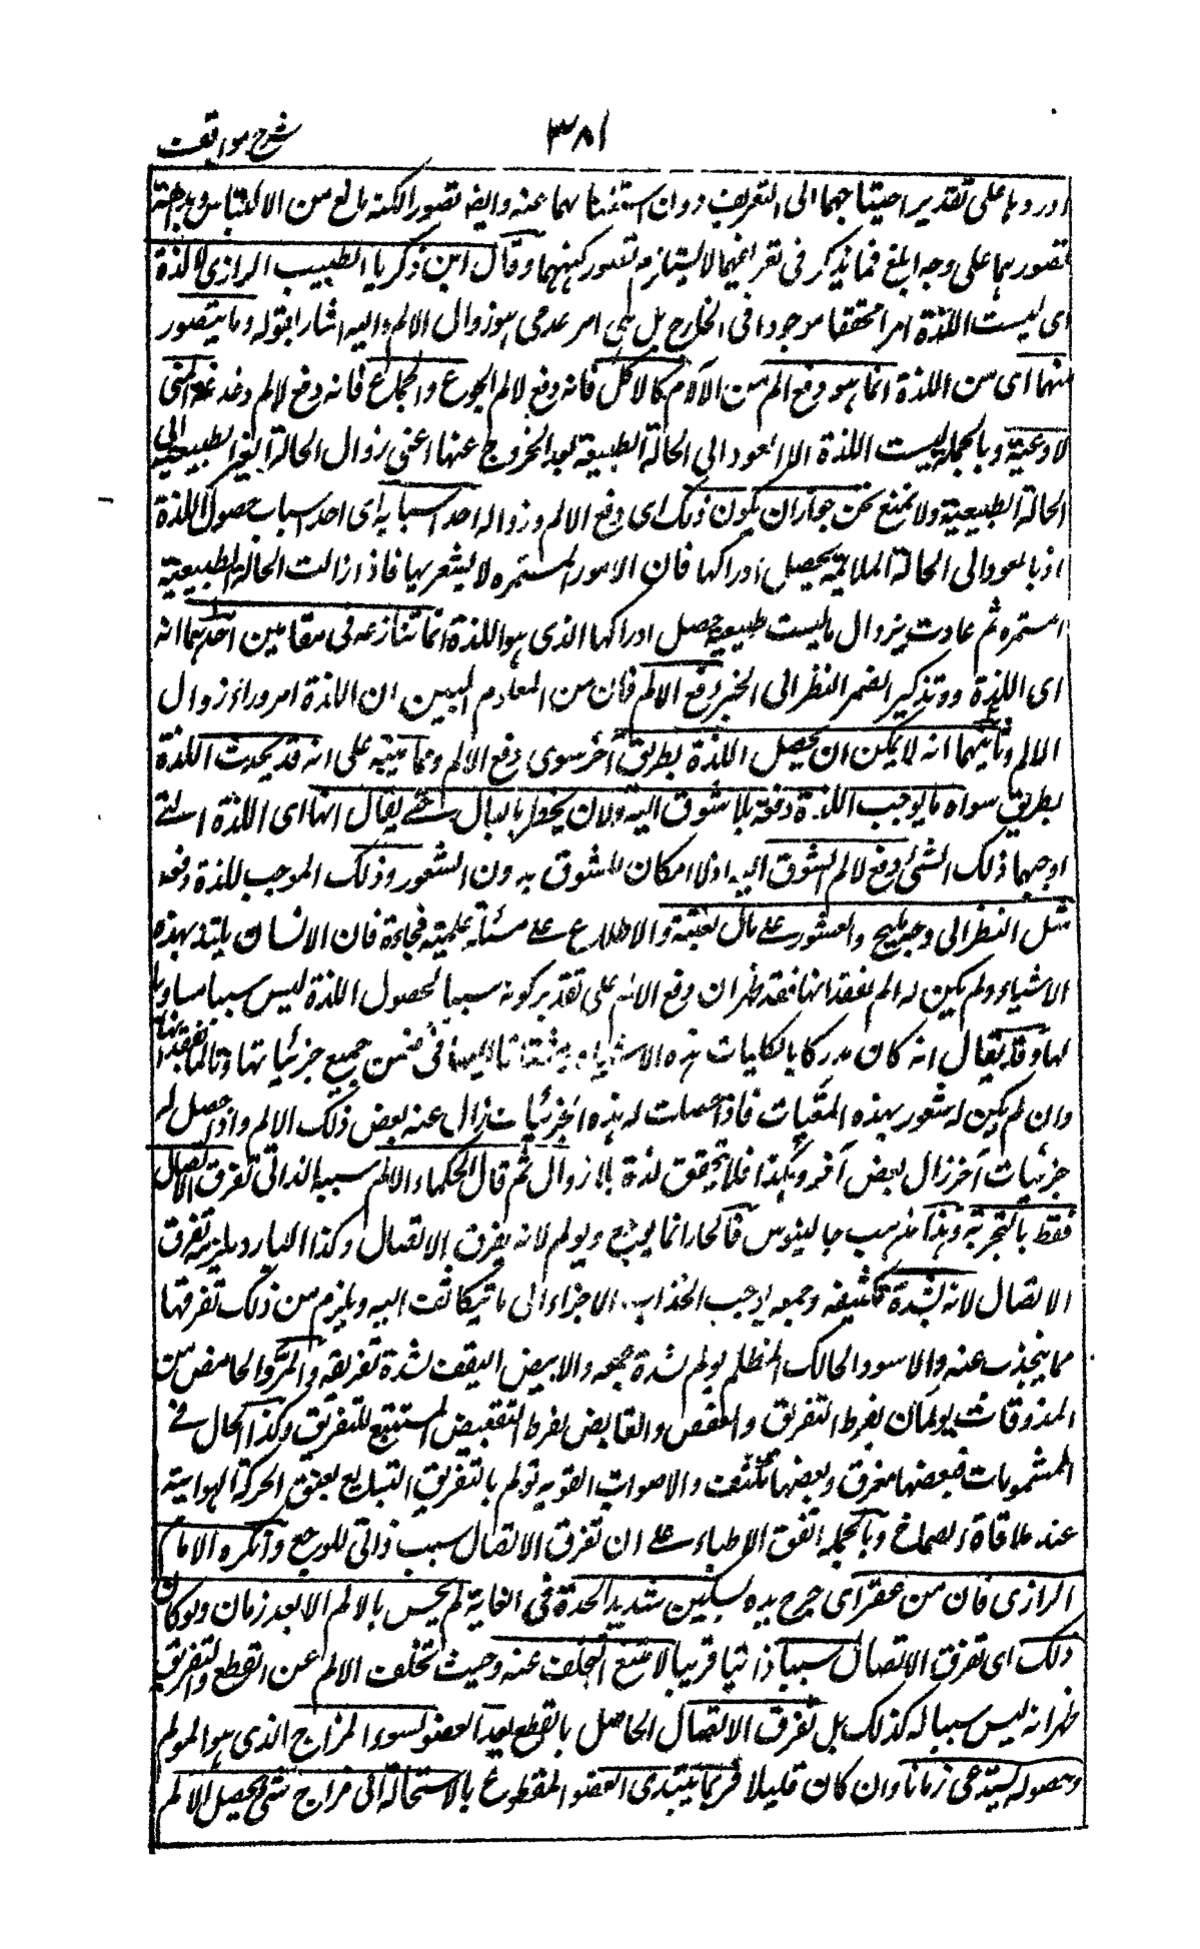 شرح مواقف
٣٨١
او ردها على تقدير احتياجهما الى التعريف دون استغنائهما عنه وايضا تصور الكنه بالغ من الالتباس
تصورهما على وجه ابلغ فما يذكر فى تعريفهما لا يستلزم تصور كنههما وقال ابن زكريا الطبيب الرازى لا لذة
اى ليست اللذة امرا محققا موجودا فى الخارج بل هى امر عدمى هو زوال الالم واليه اشار بقوله وما يتصور
منها اى من اللذة انما هو دفع الم من الآلام كالاكل فانه دفع لالم الجوع والجماع فانه دفع لالم دغدغة المنى
لاوعيته وبالجملة ليست اللذة الا العود الى الحالة الطبيعية بعد الخروج عنها اعنى زوال الحالة الغير الطبيعية الى
الحالة الطبيعية ولا نمنع نحن جواز ان يكون ذلك اى دفع الالم وزواله احد اسبابه اى احد اسباب حصول اللذة
اذ بالعود الى الحالة الملائمة يحصل ادراكها فان الامور المستمرة لا يشعر بها فاذا زالت الحالة الطبيعية
المستمرة ثم عادت بزوال ما ليست طبيعية حصل ادراكها الذى هو اللذة انما تنازعه فى مقامين احدهما انه
اى اللذة وتذكير الضمير النظر الى الخبر دفع الالم فان من المعلوم البين ان اللذة امر وراء زوال
الالم وثانيهما انه لا يمكن ان يحصل اللذة بطريق آخر سوى دفع الالم ومما ينبه على انه قد يحدث اللذة
بطريق سواه ما يوجب اللذة دفعة بلا شوق اليه ولا ان يخطر بالبال حتى يقال انها اى اللذة التى
اوجبها ذلك الشئ دفع لالم الشوق اليه اذ لا امكان للشوق بدون الشعور وذلك الموجب للذة دفعة
مثل النظر الى وجه مليح والعثور على مال بغتة والاطلاع على مسئلة علمية فجاءة فان الانسان يلتذ بهذه
الاشياء ولم يكن له الم بفقدانها فقد ظهر ان دفع الالم على تقدير كونه سببا لحصول اللذة ليس سببا مساويا
لها وقد يقال انه كان مدركا بالكليات هذه الاشياء ومشتاقا اليها فى ضمن جميع جزئياتها وتالما بفقدانها
وان لم يكن له شعور بهذه المعينات فاذا حصلت له هذه الجزئيات زال عنه بعض ذلك الالم واذا حصل له
جزئيات آخر زال بعض آخر وهكذا فلا يتحقق لذة بلا زوال ثم قال الحكماء الالم سببه الذاتى تفرق الاتصال
فقط بالتجربة وهذا مذهب جالينوس فالحار انما يوجع ويولم لانه يفرق الاتصال وكذا البارد يلزمه تفرق
الاتصال لانه لشدة تكثيفه وجمعه يوجب انجذاب الاجزاء الى ما تتكاثف اليه ويلزم من ذلك تفرقها
مما ينجذب عنه والاسود الحالك المظلم يولم لشدة جمعه والابيض اليقق لشدة تفريقه والمر والحامض من
المذوقات يولمان بفرط التفريق والعفص والقابض بفرط التقبيض المستتبع للتفريق وكذا الحال فى
المشمومات فبعضها مفرق وبعضها مكثف والاصوات القوية تولم بالتفريق التابع لعنف الحركة الهوائية
عند ملاقاة الصماخ وبالجملة اتفق الاطباء على ان تفرق الاتصال سبب ذاتى للوجع وانكره الامام
الرازى فان من عقر اى جرح يده بسكين شديد الحدة فى الغاية لم يحس بالالم الا بعد زمان ولو كان
ذلك اى تفرق الاتصال سببا ذاتيا قريبا لامتنع التخلف عنه وحيث تخلف الالم عن القطع والتفريق
ظهر انه ليس سببا له كذلك بل تفرق الاتصال الحاصل بالقطع يعد العضو لسوء المزاج الذى هو المولم
وحصوله يستدعى زمانا وان كان قليلا فربما يبتدى العضو المقطوع بالاستحالة الى مزاج شئ يحصل الالم